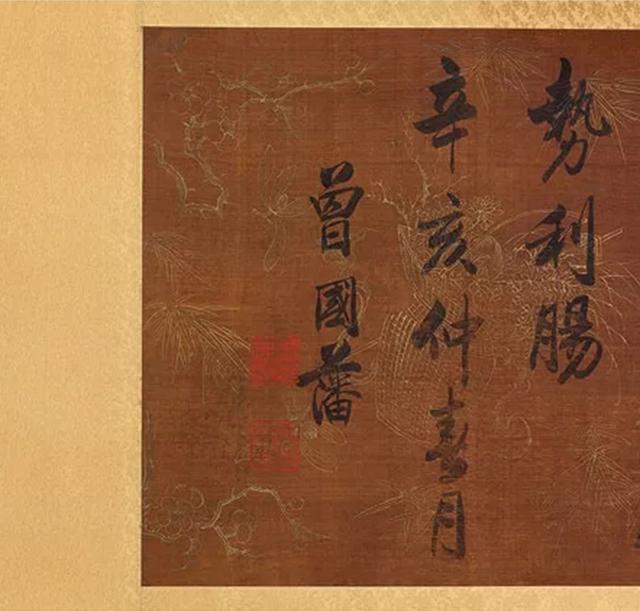 勢利腸
辛亥仲春月
曾國藩